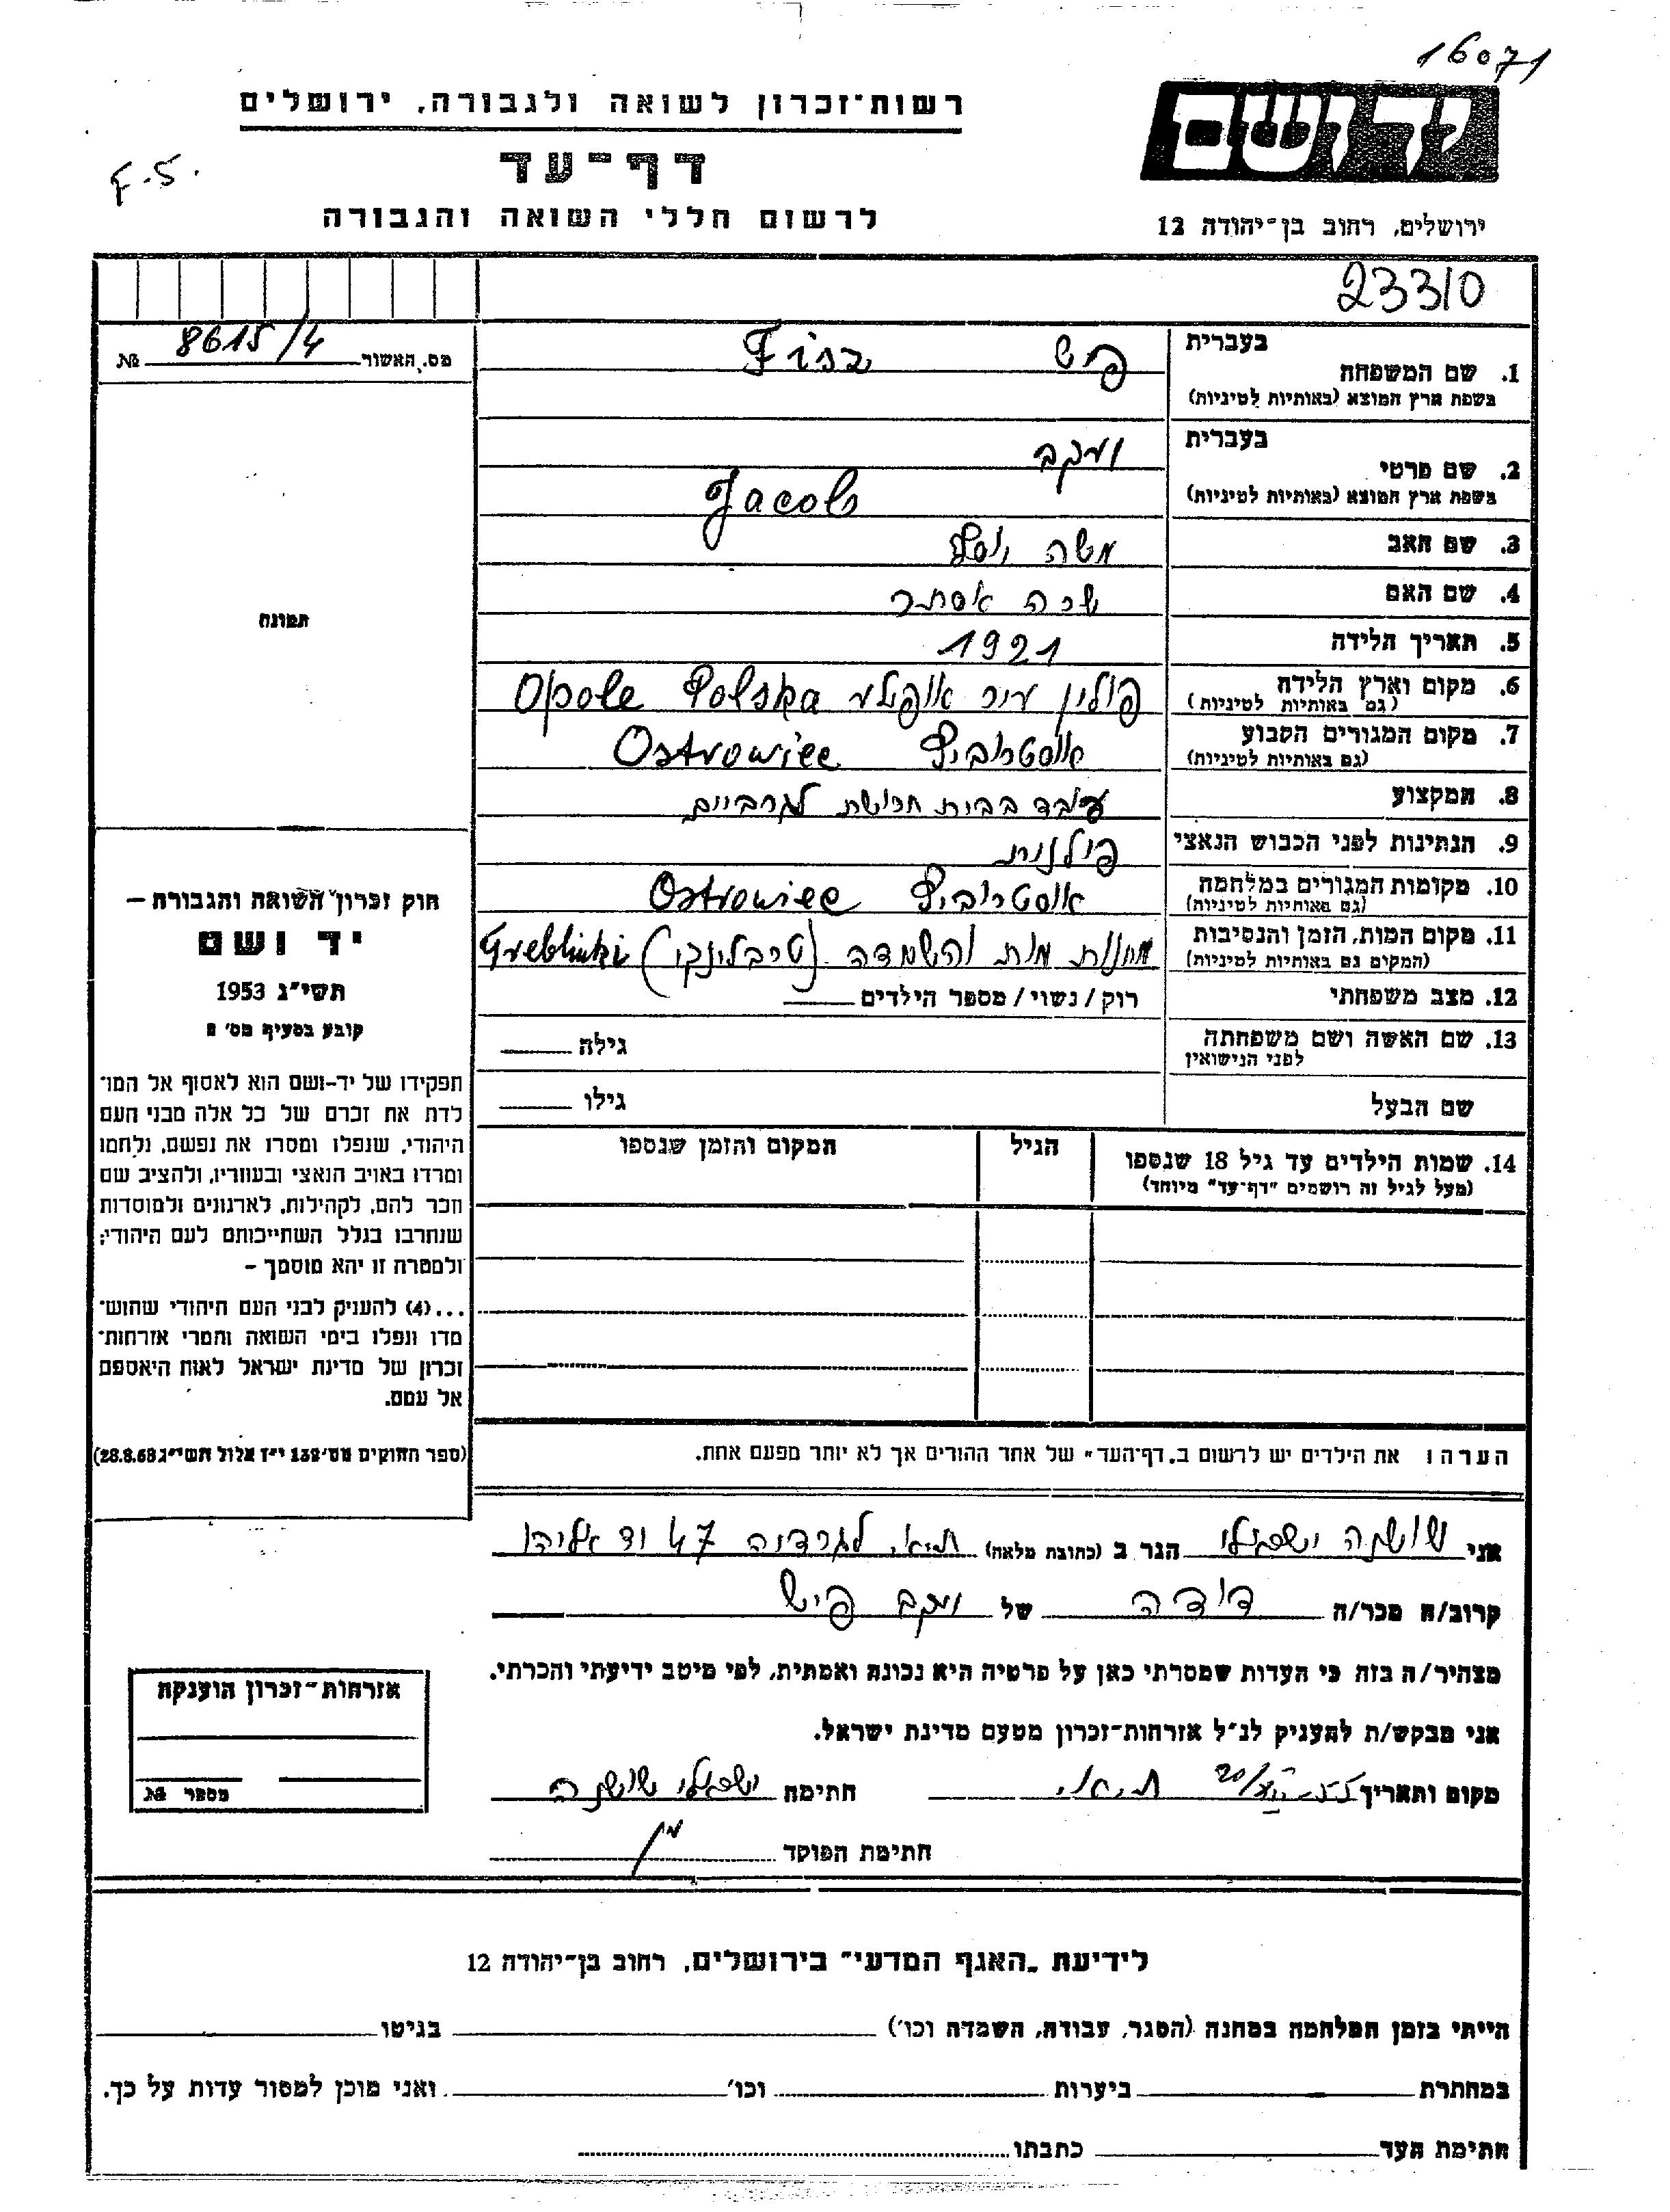 16071
רשות־זכרון לשואה ולגבורה, ירושלים
יד ושם
דף־עד
F.S.
לרשום חללי השואה והגבורה
ירושלים, רחוב בן־יהודה 12
23310
מס. האשור № 8615/4
בעברית
1. שם המשפחה פיש Fisz
בשפת ארץ המוצא (באותיות לטיניות)
בעברית
2. שם פרטי יעקב
בשפת ארץ המוצא (באותיות לטיניות) Jacob
3. שם האב משה יוסף
4. שם האם שרה אסתר
5. תאריך הלידה 1921
6. מקום וארץ הלידה פולין עיר אופולע Opole Polska
(גם באותיות לטיניות)
7. מקום המגורים הקבוע Ostrowiec
(גם באותיות לטיניות)
8. המקצוע עובד בבית חרושת לגרביים
9. הנתינות לפני הכבוש הנאצי פולנית
10. מקומות המגורים במלחמה Ostrowiec
(גם באותיות לטיניות)
11. מקום המות, הזמן והנסיבות מחנות מות והשמדה (טרבלינקי) Treblinki
(המקום גם באותיות לטיניות)
12. מצב משפחתי רוק / נשוי / מספר הילדים
13. שם האשה ושם משפחתה גילה
לפני הנישואין
שם הבעל גילו
14. שמות הילדים עד גיל 18 שנספו הגיל המקום והזמן שנספו
(מעל לגיל זה רושמים "דף־עד" מיוחד)
תמונה
חוק זכרון השואה והגבורה –
יד ושם
תשי"ג 1953
קובע בסעיף מס' 2
תפקידו של יד-ושם הוא לאסוף אל המו־
לדת את זכרם של כל אלה מבני העם
היהודי, שנפלו ומסרו את נפשם, נלחמו
ומרדו באויב הנאצי ובעוזריו, ולהציב שם
וזכר להם, לקהילות, לארגונים ולמוסדות
שנחרבו בגלל השתייכותם לעם היהודי;
ולמטרה זו יהא מוסמך –
...(4) להעניק לבני העם היהודי שהוש־
מדו ונפלו בימי השואה והמרי אזרחות־
זכרון של מדינת ישראל לאות היאספם
אל עמם.
(ספר החוקים מס' 132 י"ז אלול תשי"ג 28.8.53)
הערה: את הילדים יש לרשום ב„דף־העד" של אחד ההורים אך לא יותר מפעם אחת.
אני שושנה ישראלי הגר ב (כתובת מלאה) ת״א, לה גרדיה 47 יד אליהו
קרוב/ה מכר/ה דודה של יעקב פיש
מצהיר/ה בזה כי העדות שמסרתי כאן על פרטיה היא נכונה ואמתית, לפי מיטב ידיעתי והכרתי.
אני מבקש/ת להעניק לנ"ל אזרחות־זכרון מטעם מדינת ישראל.
מקום ותאריך ת״א חתימה ישראלי שושנה
חתימת הפוקד
אזרחות־זכרון הוענקה
מספר №
לידיעת „האגף המדעי" בירושלים, רחוב בן־יהודה 12
הייתי בזמן המלחמה במחנה (הסגר, עבודה, השמדה וכו') בגיטו
במחתרת ביערות וכו' ואני מוכן למסור עדות על כך.
חתימת העד כתבתו